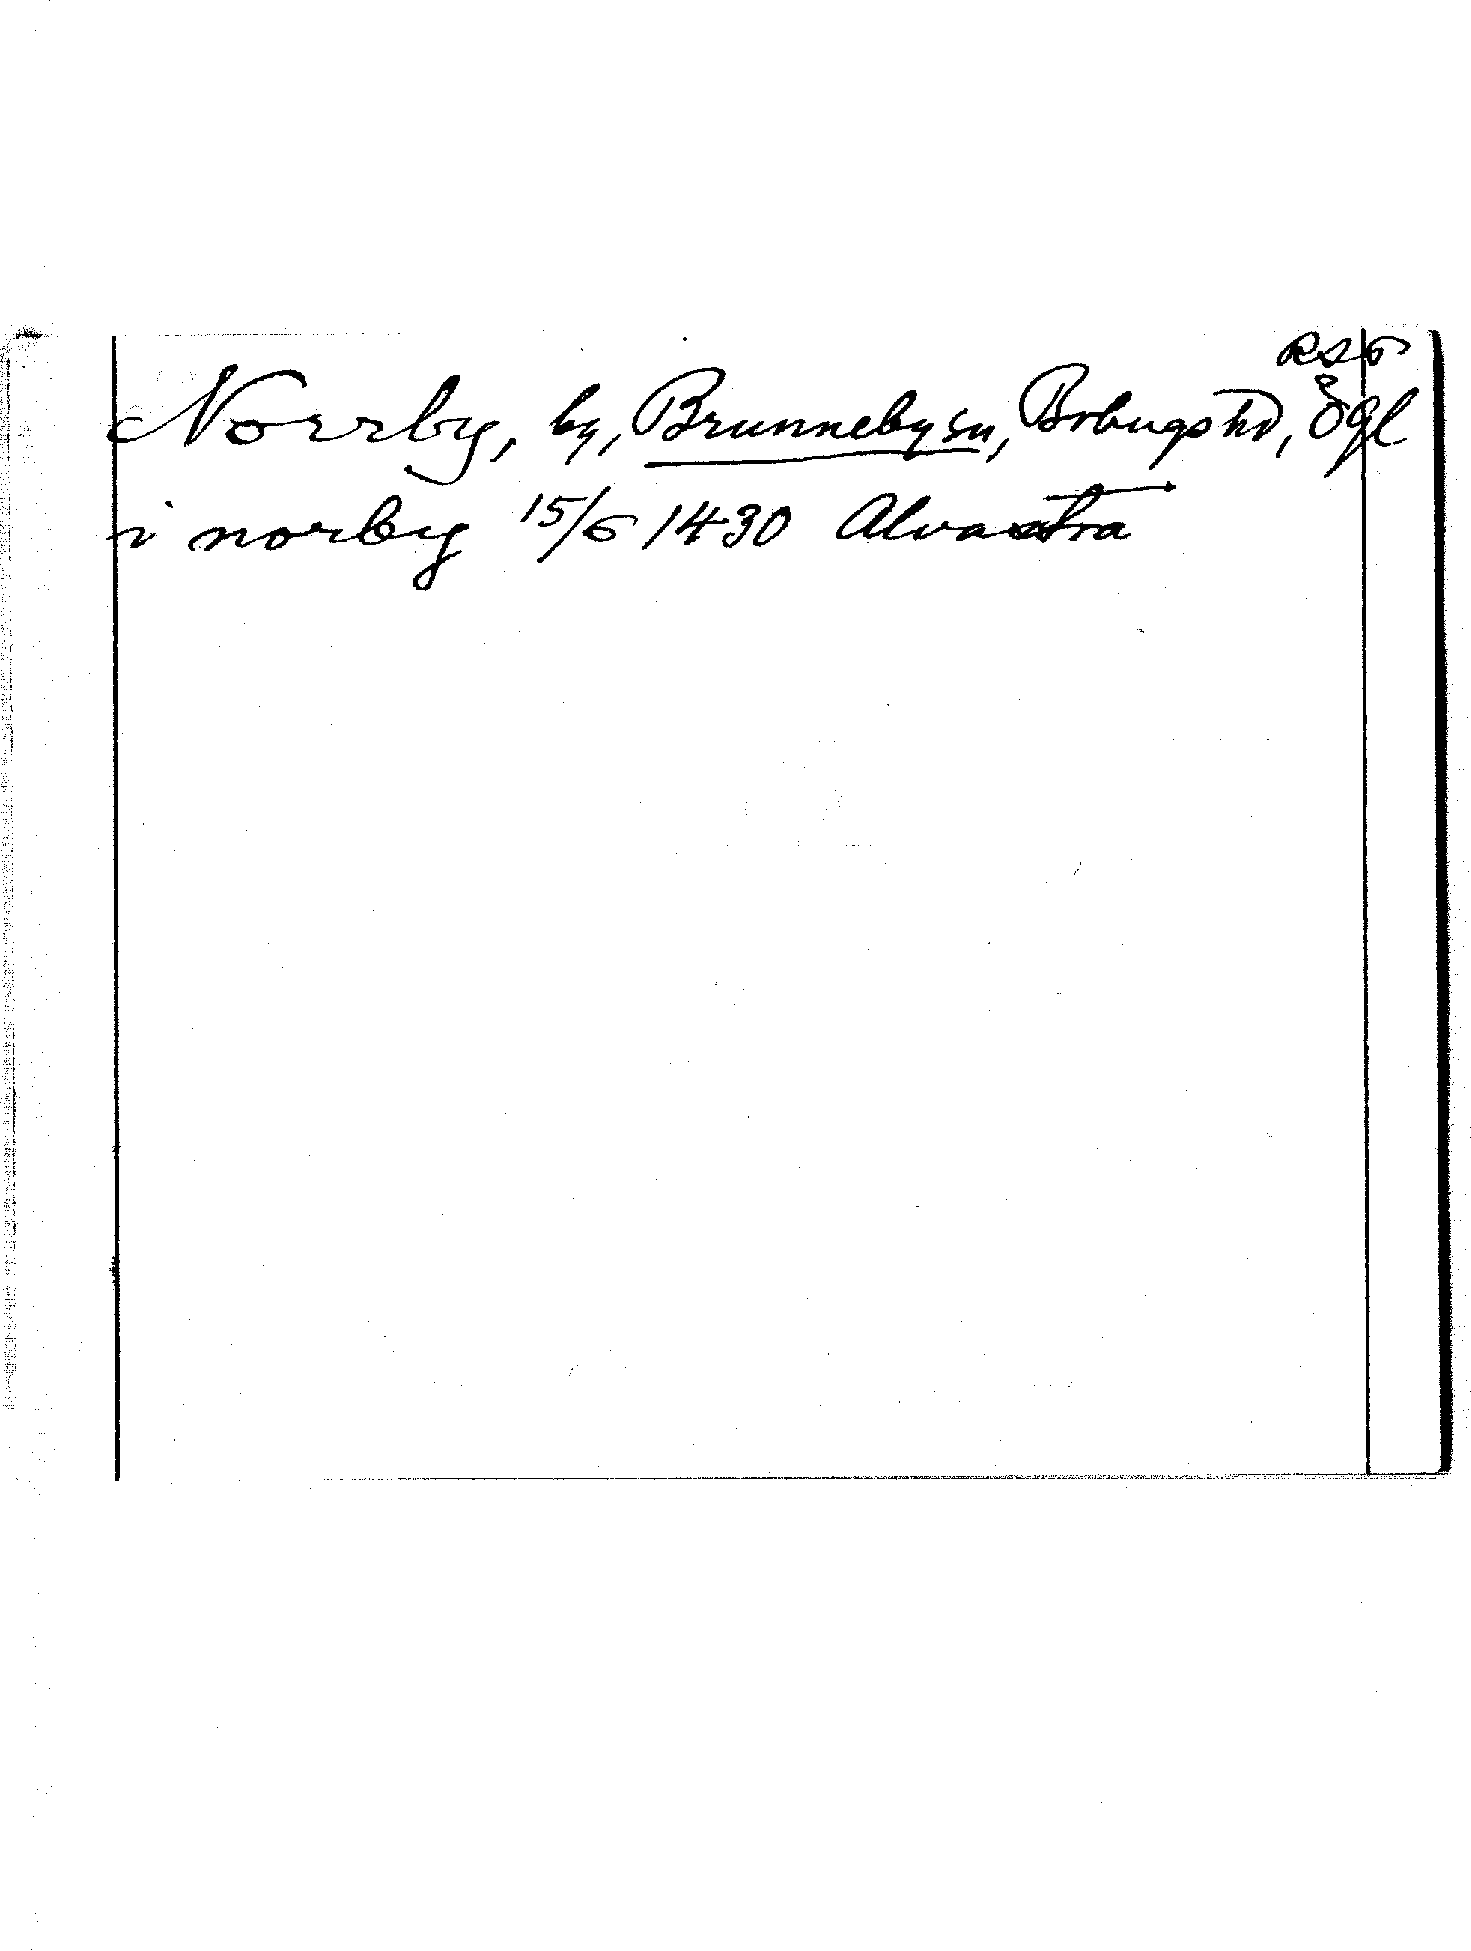 Norrby, by, Brunneby sn, Bobergs hd, Ögl
i norby 15/6 1430 Alvastra